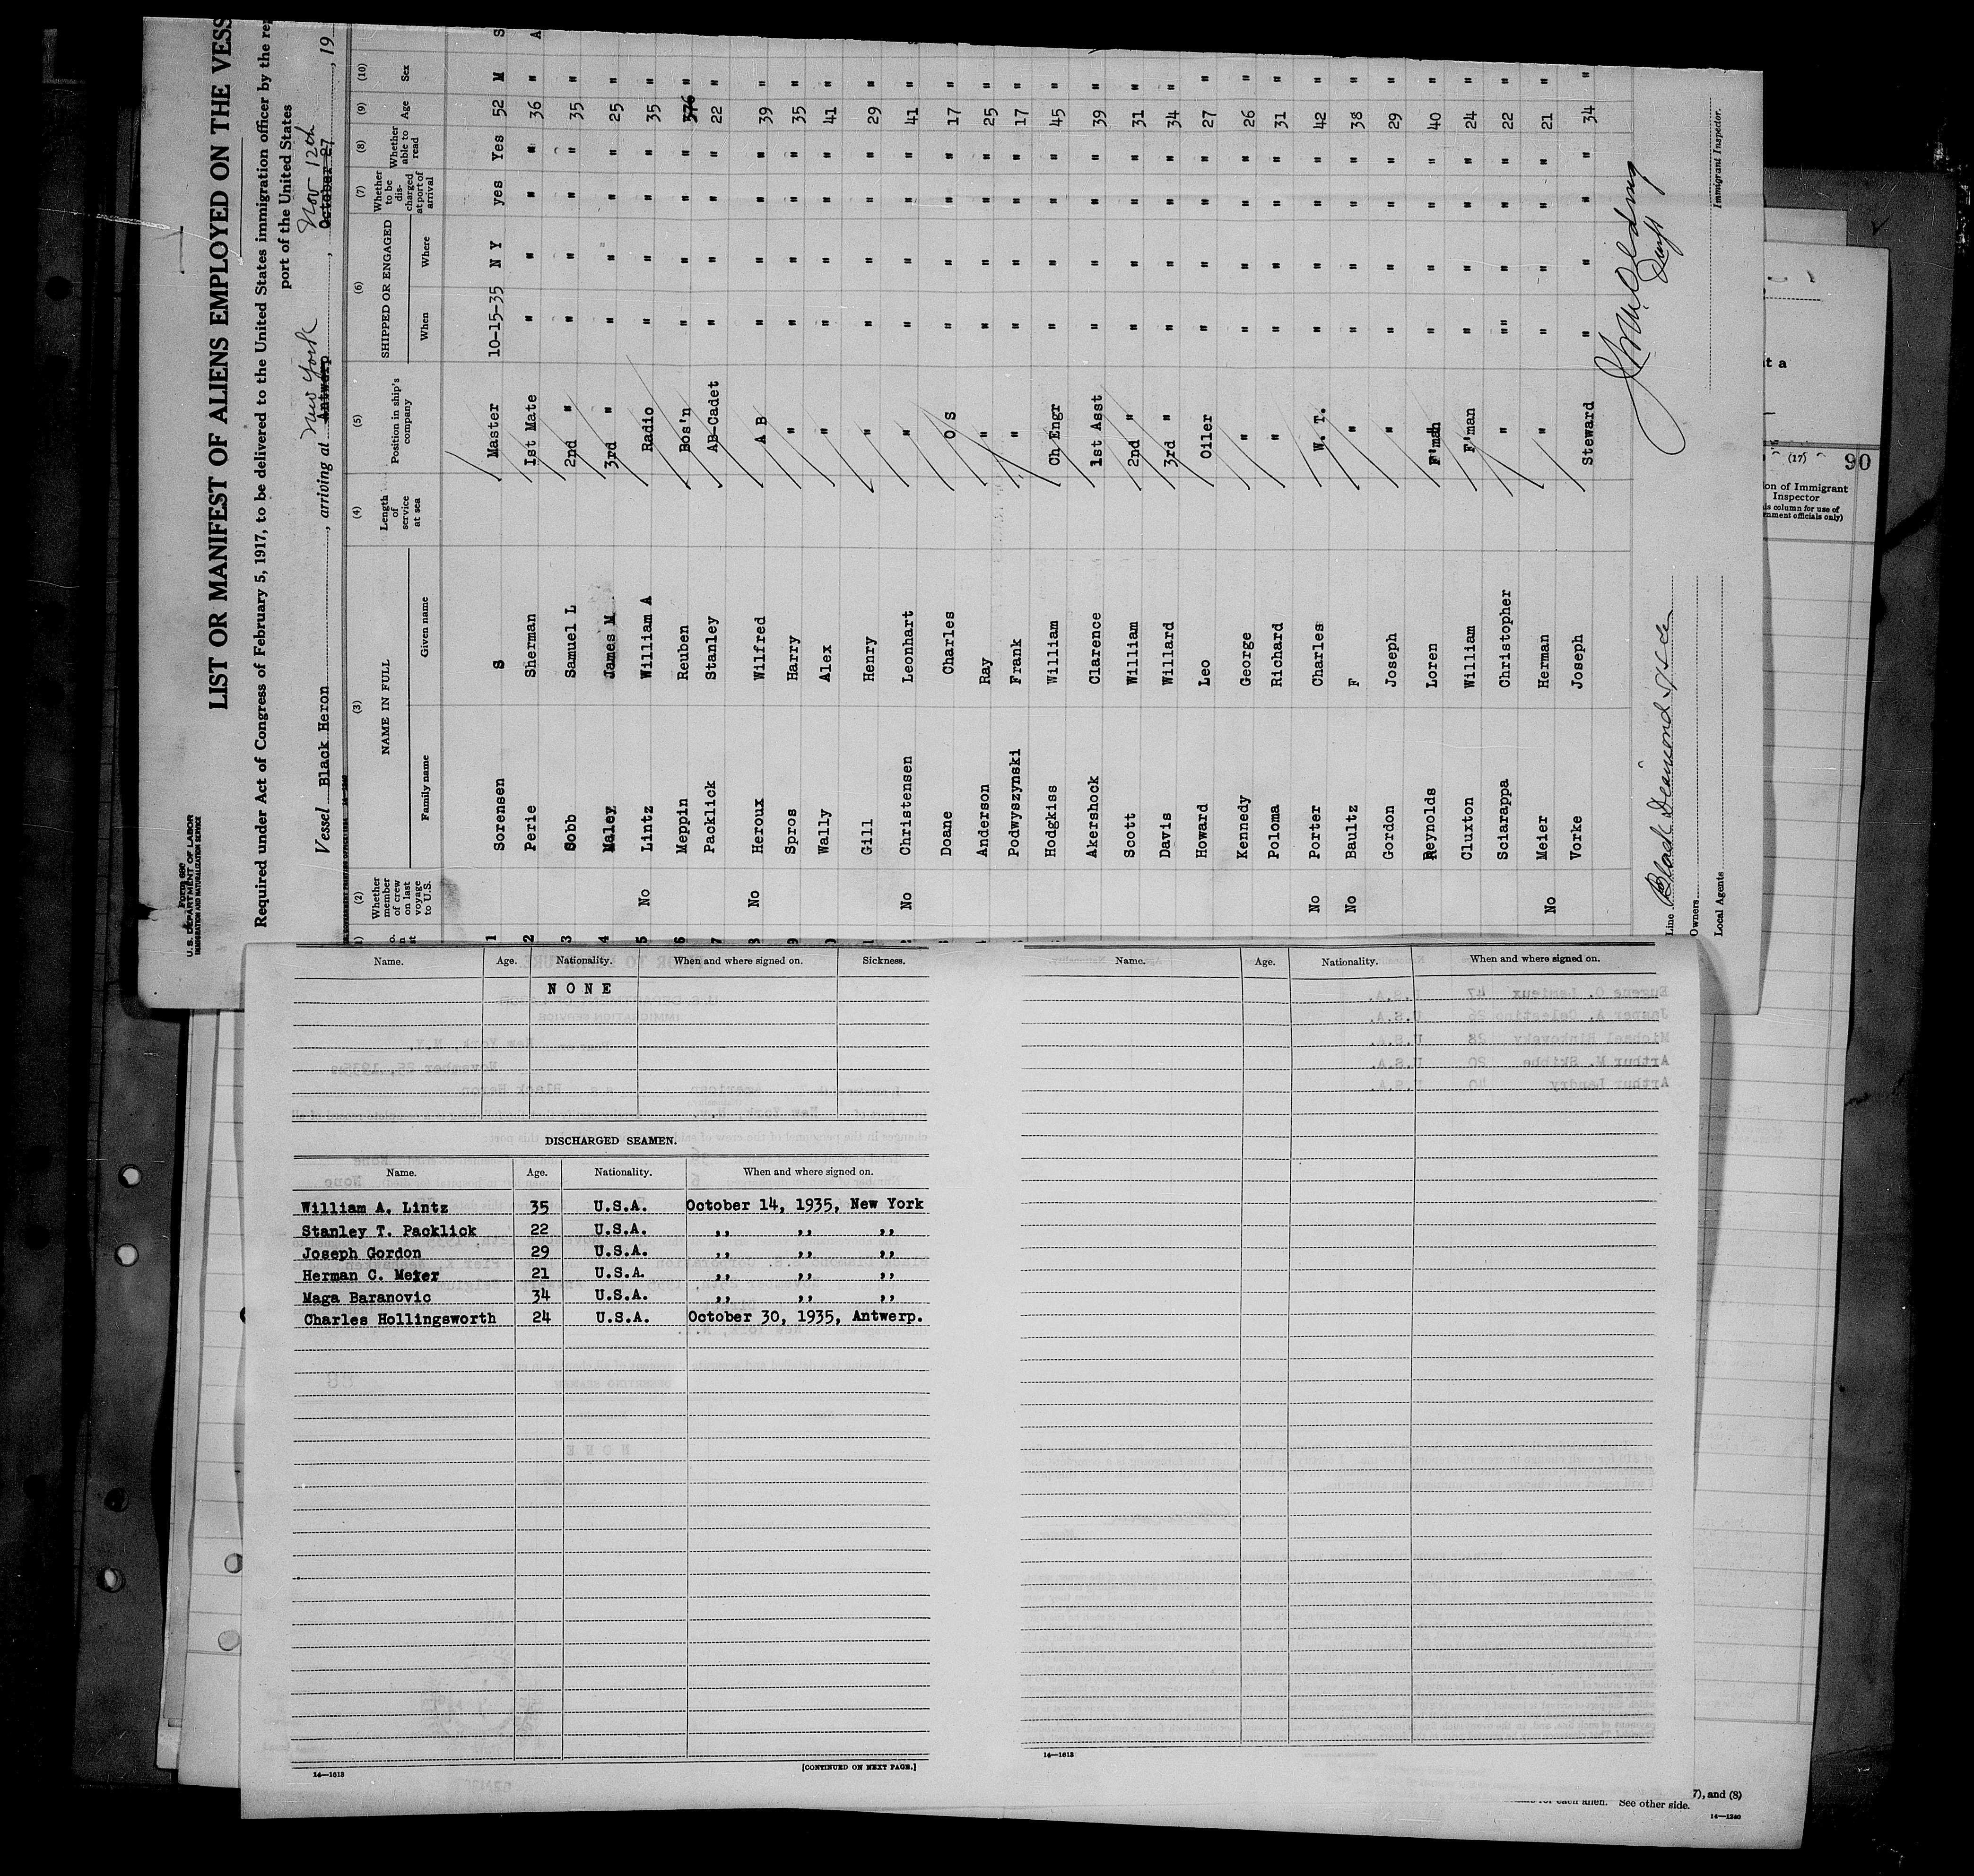 Form 680
U.S. DEPARTMENT OF LABOR
IMMIGRATION AND NATURALIZATION SERVICE
LIST OR MANIFEST OF ALIENS EMPLOYED ON THE VESS
Required under Act of Congress of February 5, 1917, to be delivered to the United States immigration officer by the re
port of the United States
Vessel Black Heron, arriving at Antwerp New York, October 27 Nov 12th, 19
(2) (3) (4) (5) (6) (7) (8) (9) (10)
Whether member of crew on last voyage to U.S. NAME IN FULL Family name Given name Length of service at sea Position in ship's company SHIPPED OR ENGAGED When Where Whether to be discharged at port of arrival Whether able to read Age Sex
1 Sorensen S Master 10-15-35 N Y yes Yes 52 M S
2 Perie Sherman 1st Mate " " " " 36 " A
3 Sobb Samuel L 2nd " " " " " 35 "
4 Maley James M 3rd " " " " " 25 "
5 No Lintz William A Radio " " " " 35 "
6 Meppin Reuben Bos'n " " " " "
7 Packlick Stanley AB-Cadet " " " " 22 "
8 No Heroux Wilfred A B " " " " 39 "
9 Spros Harry " " " " " 35 "
0 Wally Alex " " " " " 41 "
1 Gill Henry " " " " " 29 "
2 No Christensen Leonhart " " " " " 41 "
Doane Charles O S " " " " 17 "
Anderson Ray " " " " " 25 "
Podwyszynski Frank " " " " " 17 "
Hodgkiss William Ch Engr " " " " 45 "
Akershock Clarence 1st Asst " " " " 39 "
Scott William 2nd " " " " " 31 "
Davis Willard 3rd " " " " " 34 "
Howard Leo Oiler " " " " 27 "
Kennedy George " " " " " 26 "
Poloma Richard " " " " " 31 "
No Porter Charles W. T. " " " " 42 "
No Baultz F " " " " " 38 "
Gordon Joseph " " " " " 29 "
Reynolds Loren F'man " " " " 40 "
Cluxton William F'man " " " " 24 "
Sciarappa Christopher " "" " " " 22 "
No Meier Herman " " " " " 21 "
Vorke Joseph Steward " " " " 34 "
Line Black Diamond S/S Co
Owners
Local Agents
Immigrant Inspector.
Name. Age. Nationality. When and where signed on. Sickness.
NONE
DISCHARGED SEAMEN.
Name. Age. Nationality. When and where signed on.
William A. Lintz 35 U.S.A. October 14, 1935, New York
Stanley T. Packlick 22 U.S.A. ,, ,, ,,
Joseph Gordon 29 U.S.A. ,, ,, ,,
Herman C. Meier 21 U.S.A. ,, ,, ,,
Maga Baranovic 34 U.S.A. ,, ,, ,,
Charles Hollingsworth 24 U.S.A. October 30, 1935, Antwerp.
14—1613
[CONTINUED ON NEXT PAGE.]
Name. Age. Nationality. When and where signed on.
14—1613
t a
(17) 90
on of Immigrant
Inspector
is column for use of
rnment officials only)
7), and (8)
for each alien. See other side.
14—1240